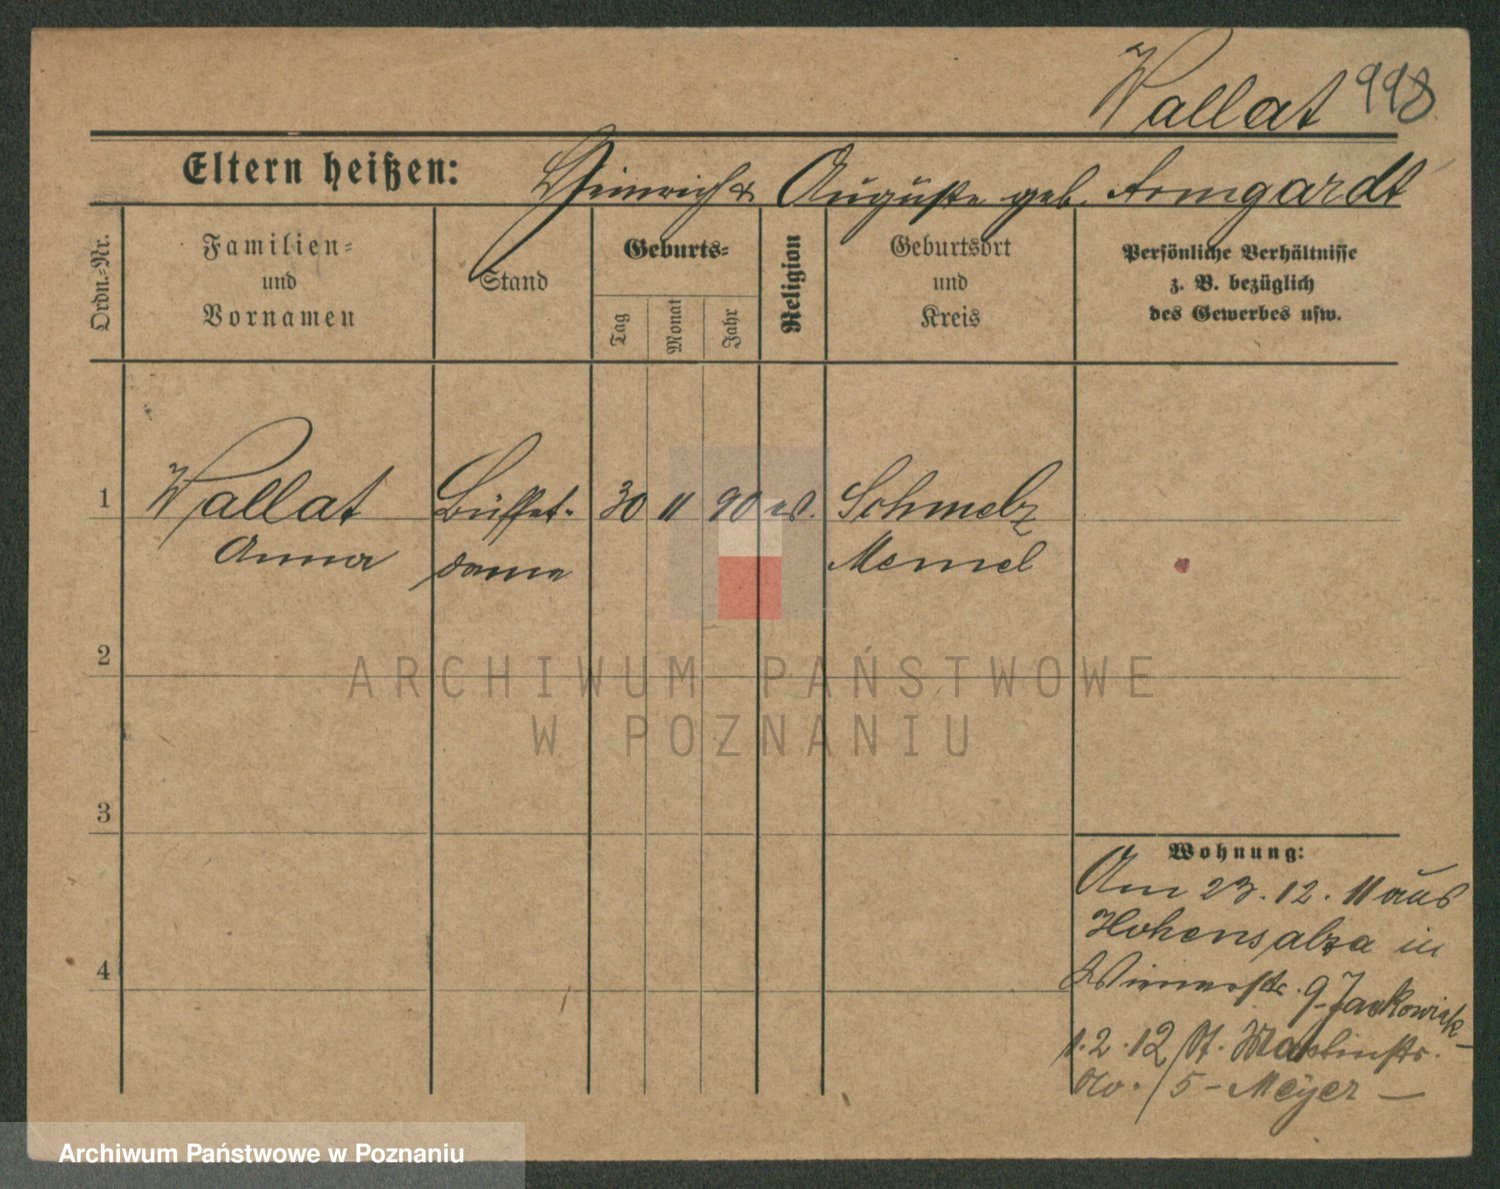 Wallat 998
Eltern heißen: Heinrich & Auguste geb. Armgardt
Ordn.-Nr.
Familien-
und
Vornamen
Stand
Geburts-
Tag
Monat
Jahr
Religion
Geburtsort
und
Kreis
Persönliche Verhältnisse
z. B. bezüglich
des Gewerbes usw.
1 Wallat Büffet- 30 11 90 ev. Schmelz
Anna dame Memel
2
3
4
Wohnung:
Am 23. 12. 11 aus
Hohensalza in
Wienerstr. 9 Jackowiak-
1. 2. 12 St. Martinstr.
No. 5 - Meÿer -
ARCHIWUM PAŃSTWOWE
W POZNANIU
Archiwum Państwowe w Poznaniu